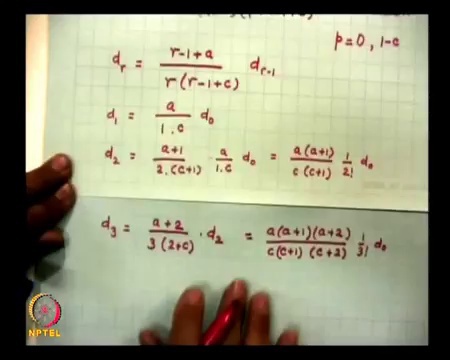 p=0, 1-c
d_r = \frac{r-1+a}{r(r-1+c)} d_{r-1}
d_1 = \frac{a}{1.c} d_0
d_2 = \frac{a+1}{2.(c+1)} \cdot \frac{a}{1.c} d_0 = \frac{a(a+1)}{c(c+1)} \frac{1}{2!} d_0
d_3 = \frac{a+2}{3(2+c)} \cdot d_2 = \frac{a(a+1)(a+2)}{c(c+1)(c+2)} \frac{1}{3!} d_0
NPTEL